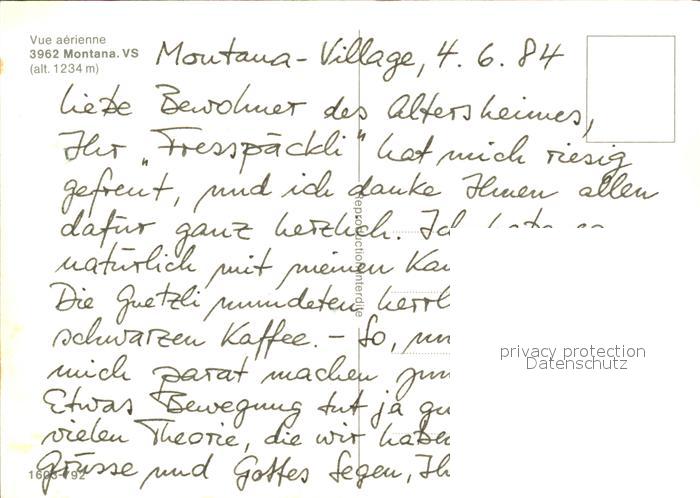 Vue aérienne
3962 Montana. VS
(alt. 1234 m)
Montana-Village, 4. 6. 84
Liebe Bewohner des Altersheimes,
Ihr „Fresspäckli" hat mich riesig
gefreut, und ich danke Ihnen allen
dafür ganz herzlich. Ich
natürlich mit meinen
Die Guetzli mundeten
schwarzen Kaffee. – So,
mich parat machen
Etwas Bewegung tut ja
vielen Theorie, die wir
Grüsse und Gottes Segen,
Reproduction interdite
privacy protection
Datenschutz